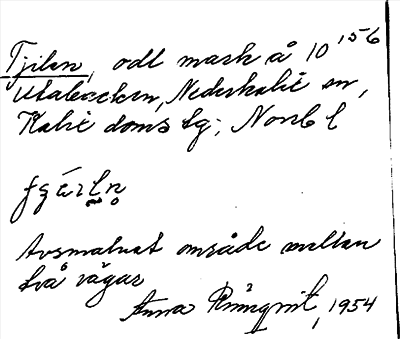 Tjilen, odl mark å 10 156
Utabacken, Nederkalix sn,
Kalix doms lg; Norrb l
Avsmalnat område mellan
två vägar
Anna Rönnqvist, 1954